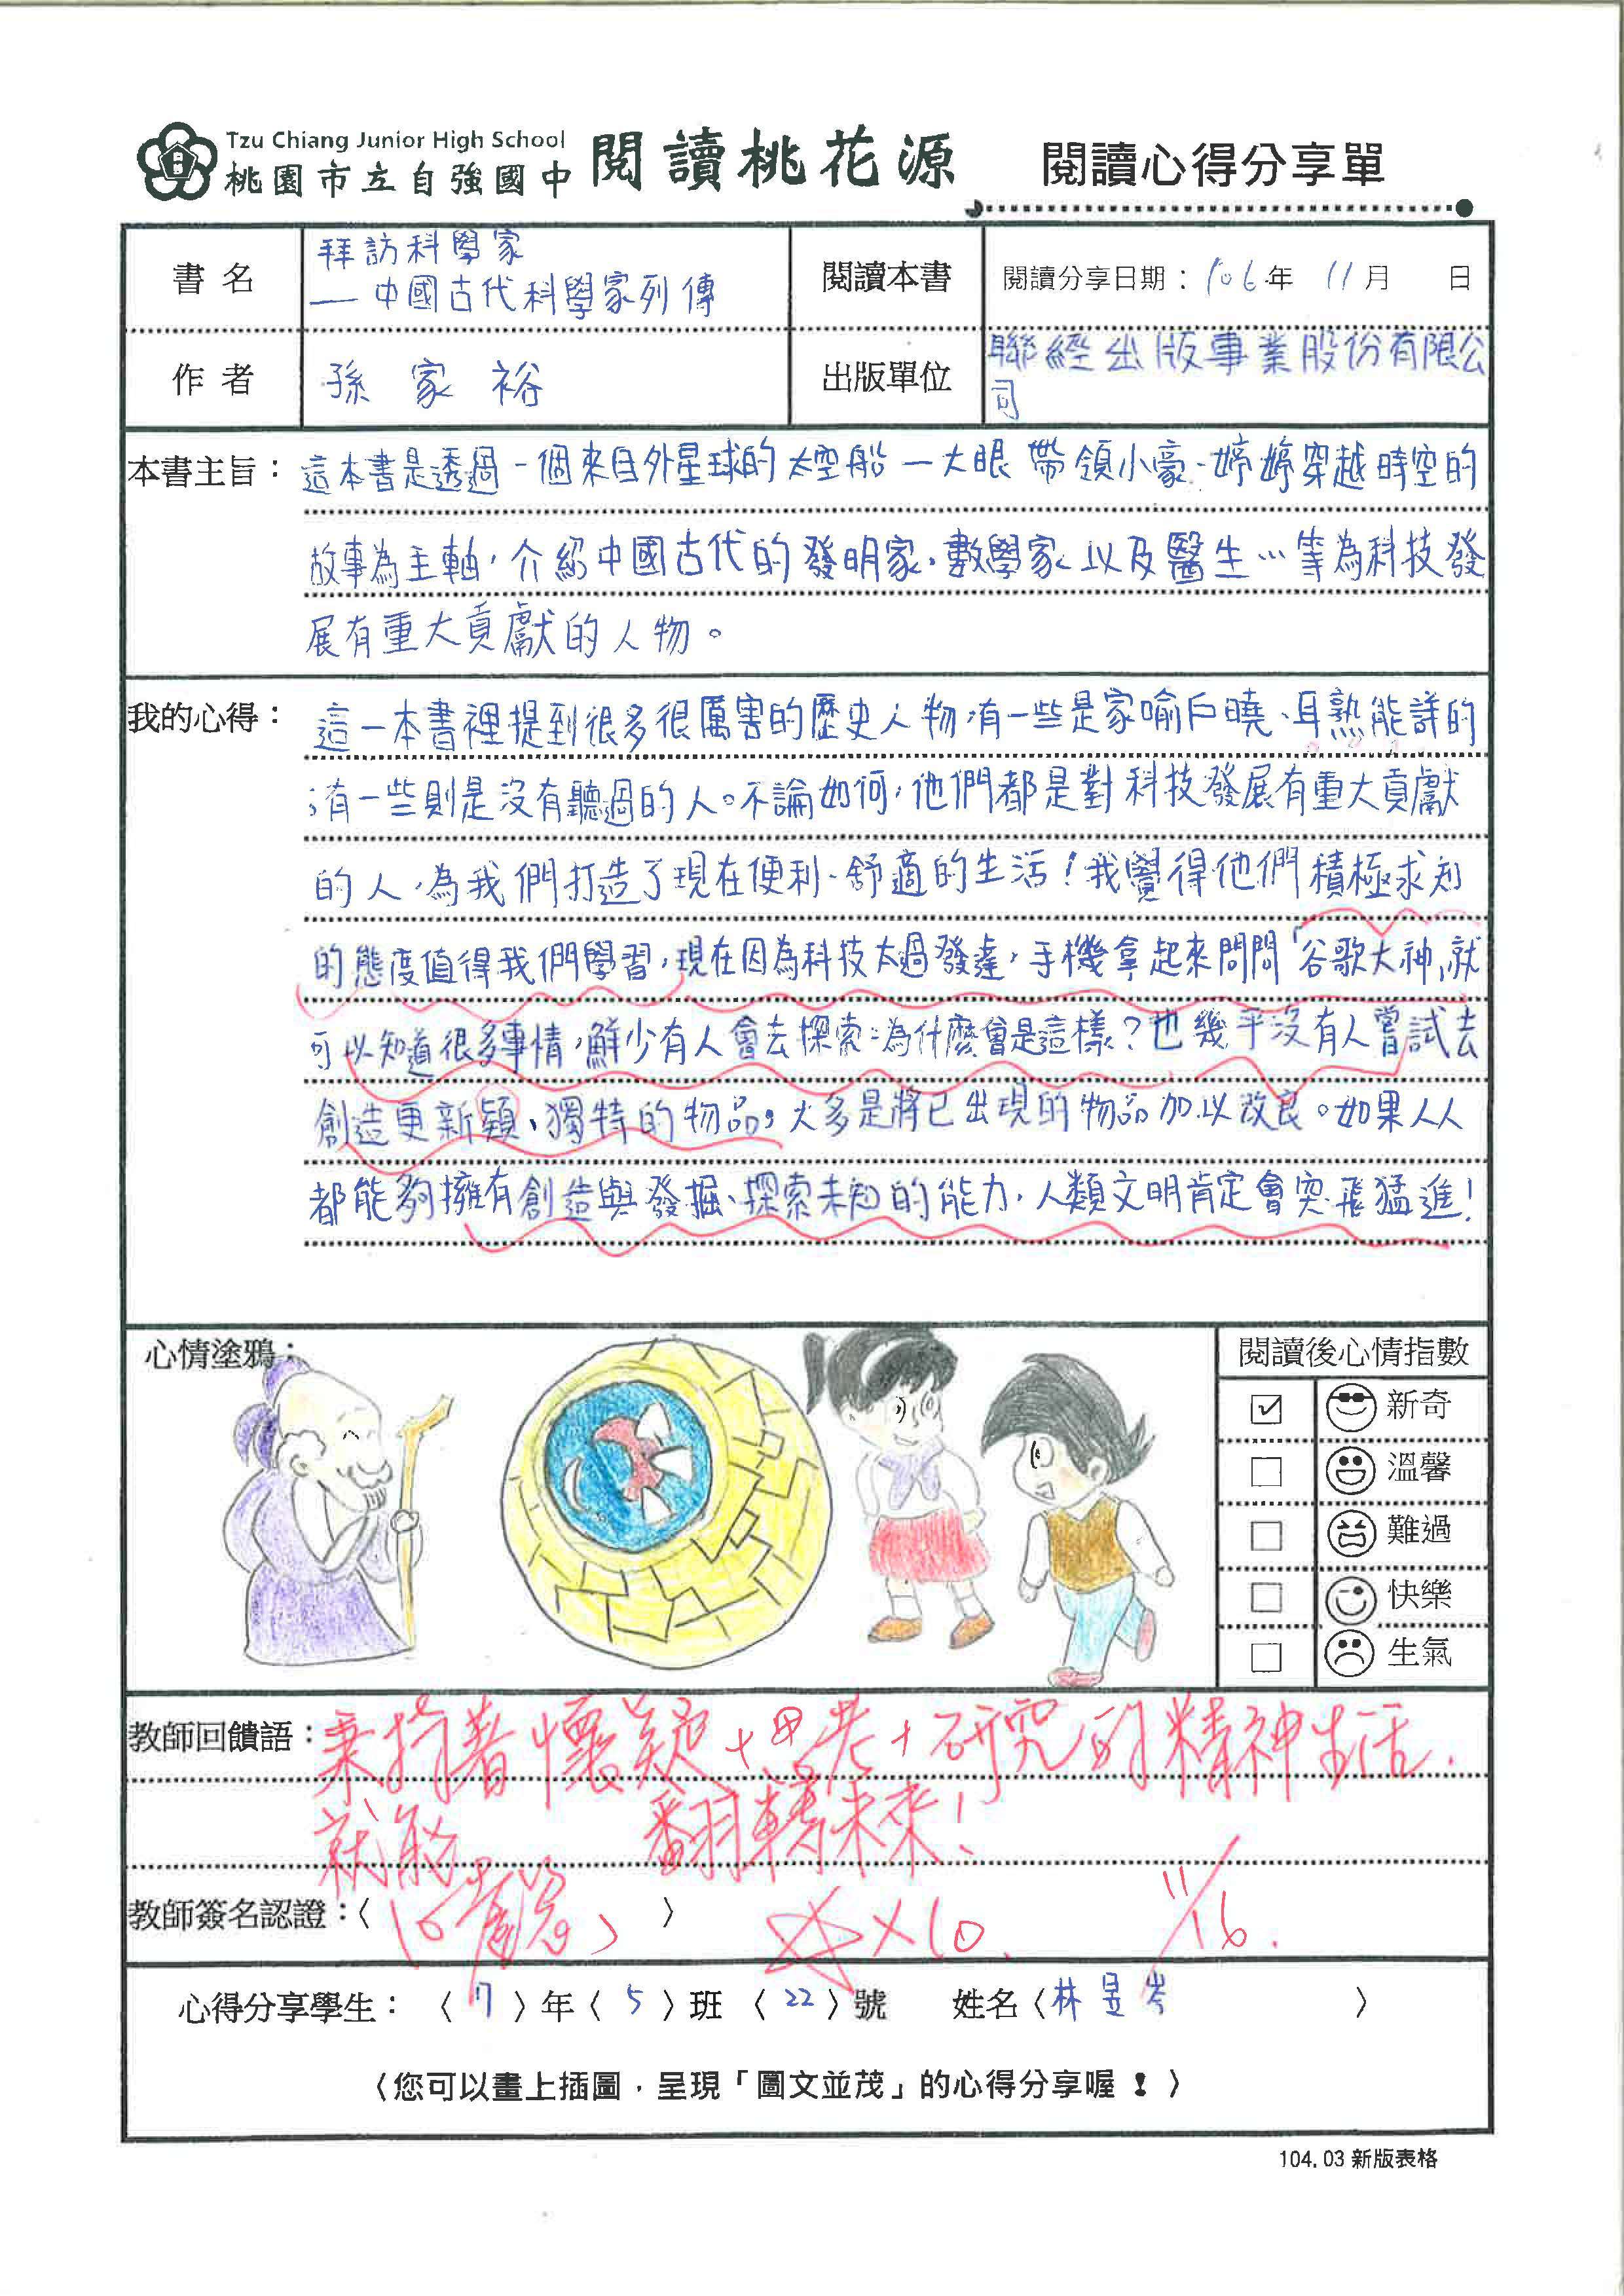 Tzu Chiang Junior High School
桃園市立自強國中 閱讀桃花源 閱讀心得分享單
書名 拜訪科學家
—中國古代科學家列傳
閱讀本書 閱讀分享日期：106年 11月 日
作者 孫家裕
出版單位 聯經出版事業股份有限公
司
本書主旨：這本書是透過一個來自外星球的太空船—大眼 帶領小豪、婷婷穿越時空的
故事為主軸，介紹中國古代的發明家、數學家以及醫生…等為科技發
展有重大貢獻的人物。
我的心得：這一本書裡提到很多很厲害的歷史人物，有一些是家喻戶曉、耳熟能詳的
；有一些則是沒有聽過的人。不論如何，他們都是對科技發展有重大貢獻
的人，為我們打造了現在便利、舒適的生活！我覺得他們積極求知
的態度值得我們學習，現在因為科技太過發達，手機拿起來問問「谷歌大神」就
可以知道很多事情，鮮少有人會去探索：為什麼會是這樣？也幾乎沒有人嘗試去
創造更新穎、獨特的物品，大多是將已出現的物品加以改良。如果人人
都能夠擁有創造與發掘、探索未知的能力，人類文明肯定會突飛猛進！
心情塗鴉：
閱讀後心情指數
☑ 新奇
□ 溫馨
□ 難過
□ 快樂
□ 生氣
教師回饋語：秉持著懷疑+思考+研究的精神生活，
就能 翻轉未來！
教師簽名認證：〈 〉 ☆×10. 11/16.
心得分享學生：〈7〉年〈5〉班〈22〉號 姓名〈林昱岑 〉
〈您可以畫上插圖，呈現「圖文並茂」的心得分享喔！〉
104.03 新版表格